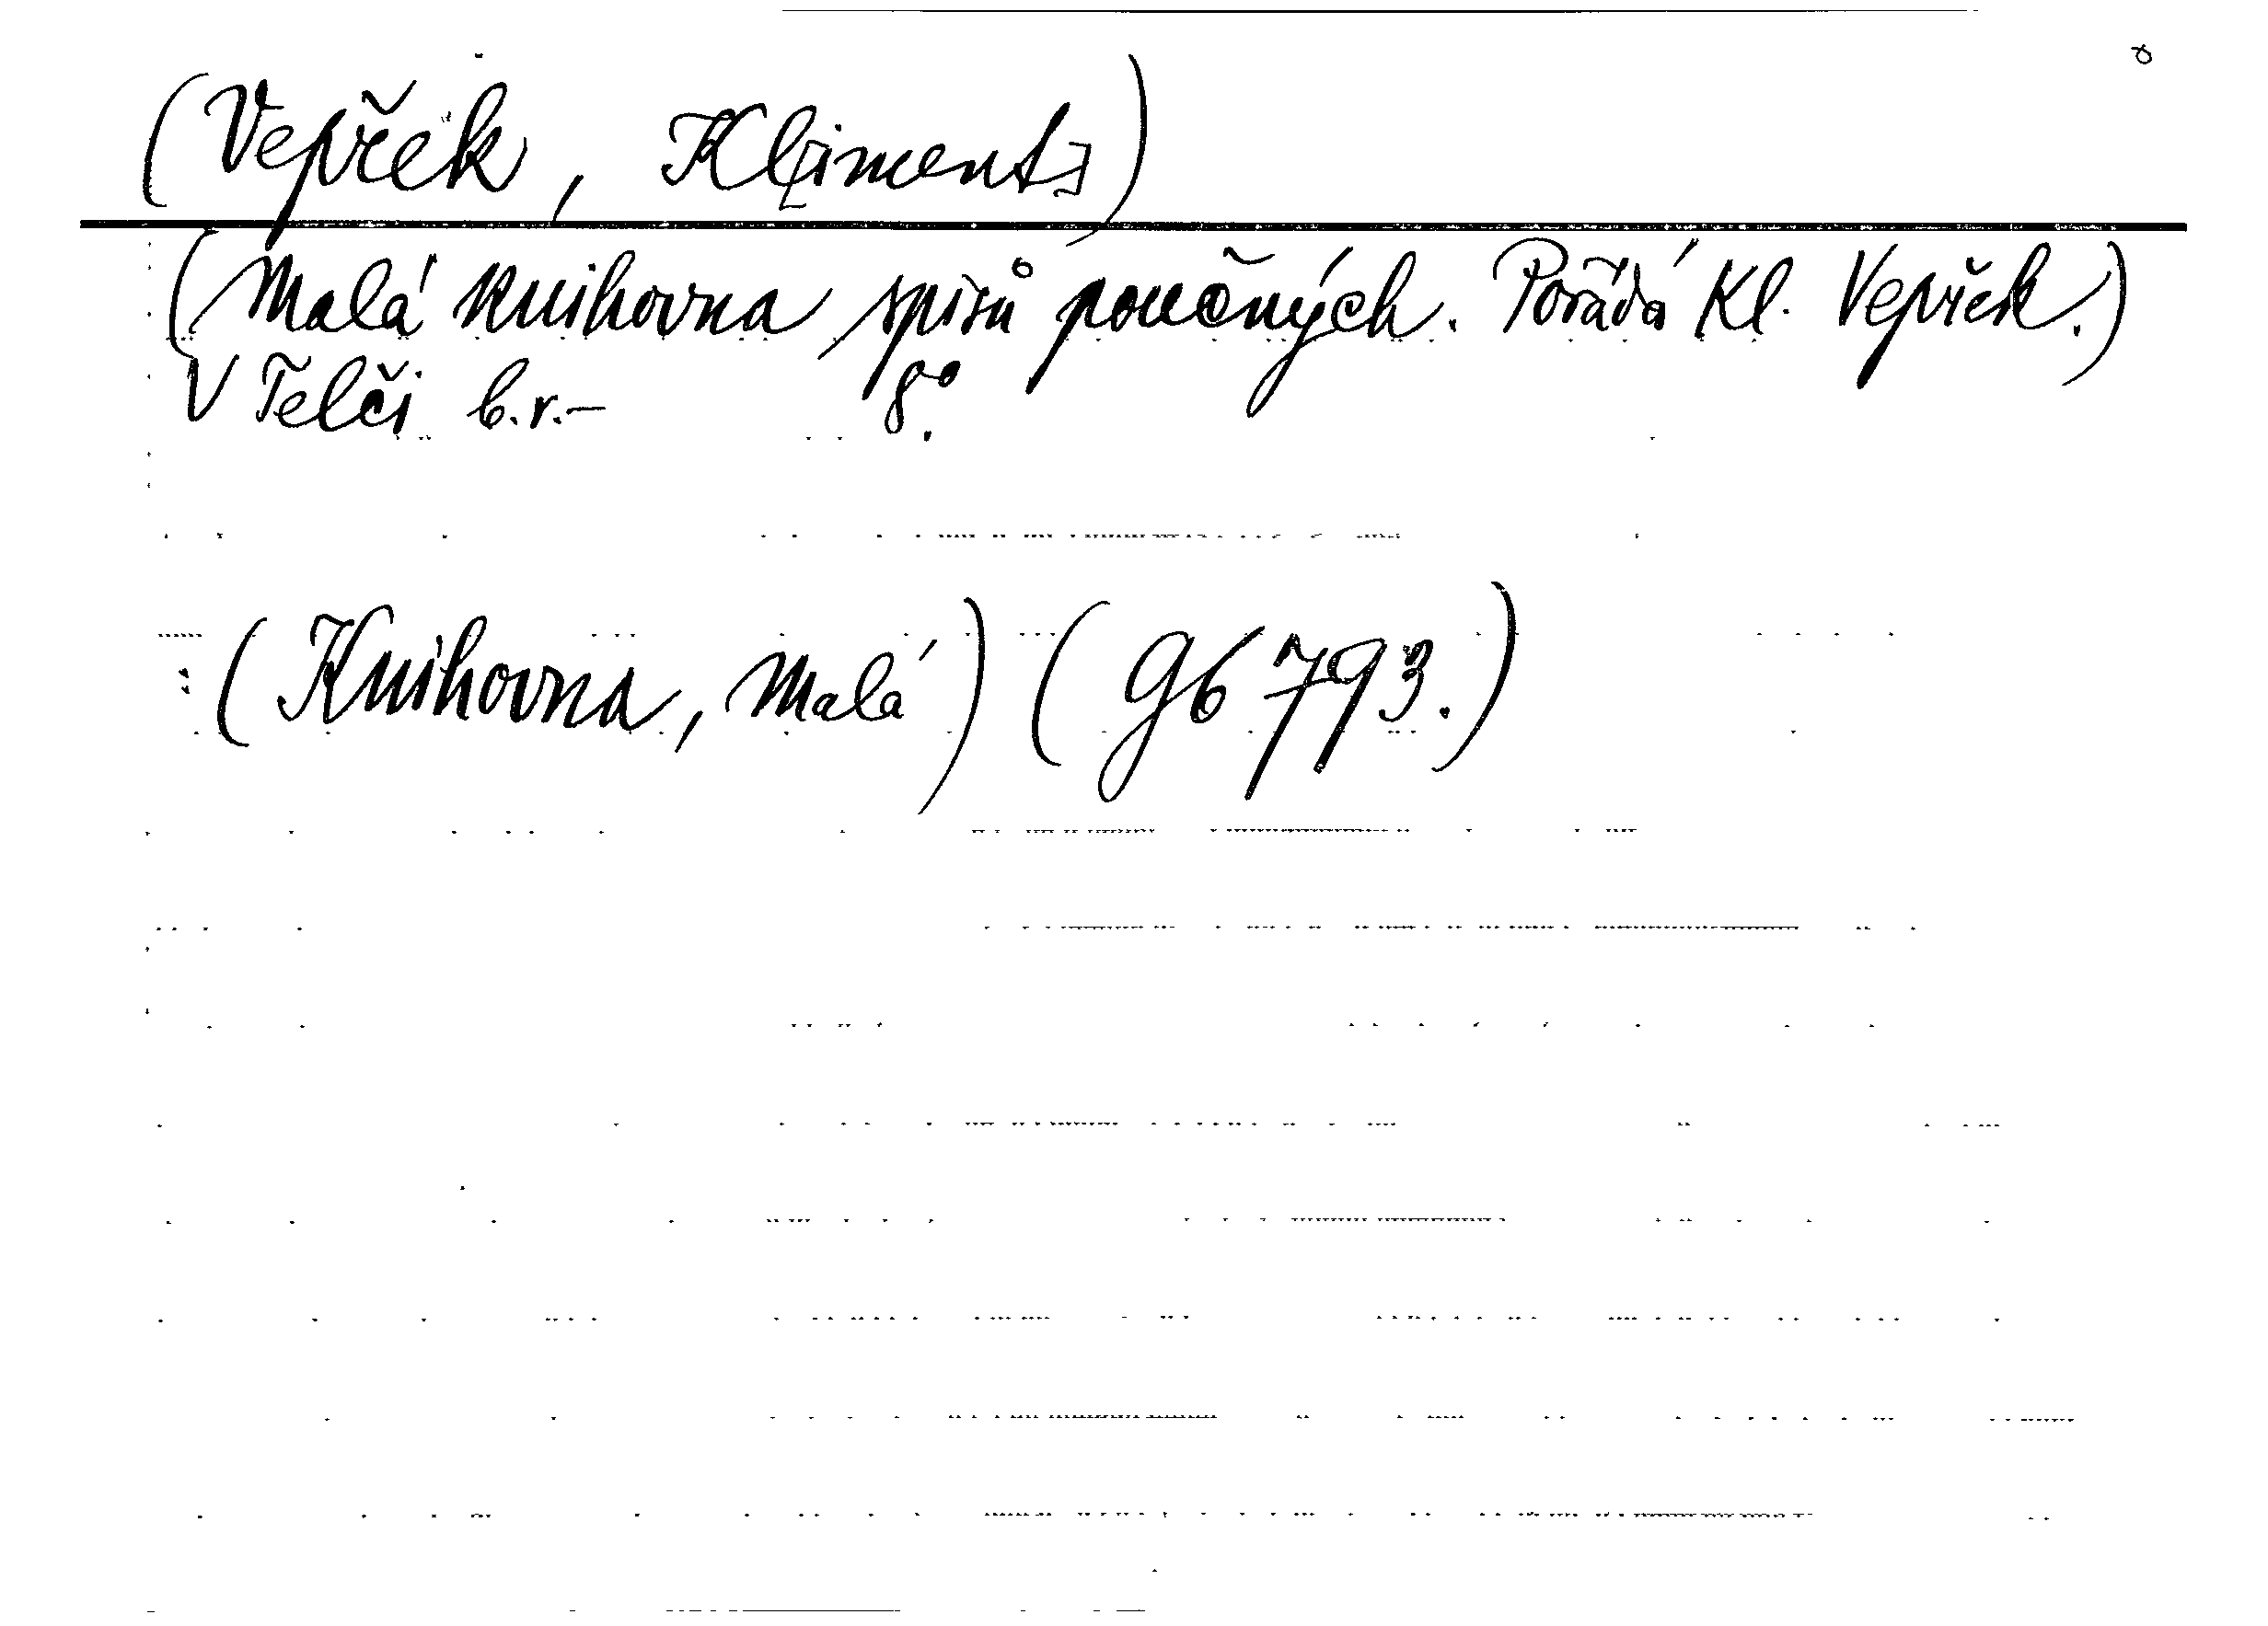 (Vepřek, Kl[iment])
(Malá knihovna spisů poučných. Pořádá Kl. Vepřek.)
V Telči b.r.- 8°.
: (Knihovna, Malá) (96793.)